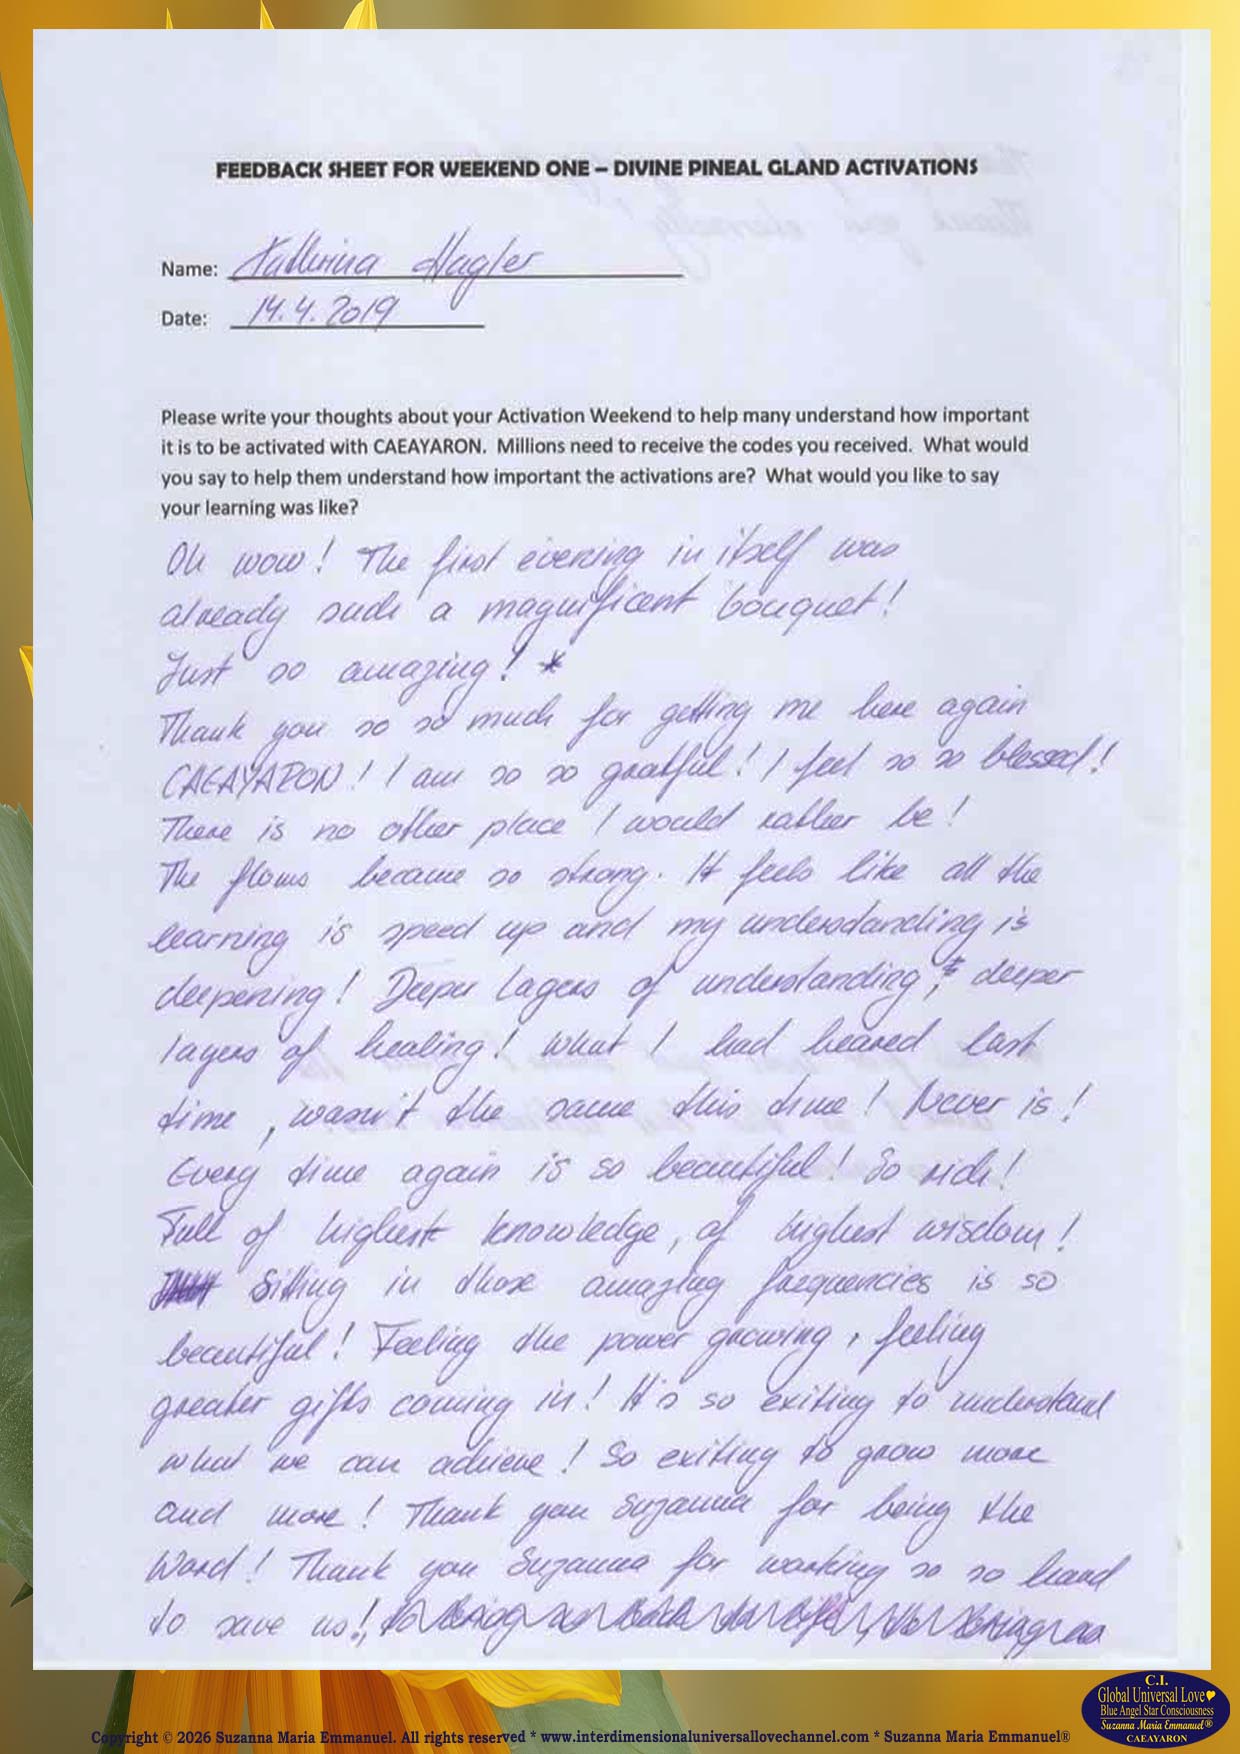 FEEDBACK SHEET FOR WEEKEND ONE – DIVINE PINEAL GLAND ACTIVATIONS
Name: Kathrina Hagler
Date: 14.4.2019
Please write your thoughts about your Activation Weekend to help many understand how important
it is to be activated with CAEAYARON. Millions need to receive the codes you received. What would
you say to help them understand how important the activations are? What would you like to say
your learning was like?
Oh wow! The first evening in itself was
already such a magnificent bouquet!
Just so amazing! *
Thank you so so much for getting me here again
CAEAYARON! I am so so gratful! I feel so so blessed!
There is no other place I would rather be!
The flows became so strong. It feels like all the
learning is speed up and my understanding is
deepening! Deeper layers of understanding, & deeper
layers of healing! What I had heared last
time, wasn't the same this time! Never is!
Every time again is so beautiful! So rich!
Full of highest knowledge, of highest wisdom!
Sitting in those amazing frequencies is so
beautiful! Feeling the power growing, feeling
greater gifts coming in! It's so exiting to understand
what we can achieve! So exiting to grow more
and more! Thank you Suzanna for being the
Word! Thank you Suzanna for working so so hard
to save us!
C.I.
Global Universal Love
Blue Angel Star Consciousness
Suzanna Maria Emmanuel®
CAEAYARON
Copyright © 2026 Suzanna Maria Emmanuel. All rights reserved * www.interdimensionaluniversallovechannel.com * Suzanna Maria Emmanuel®